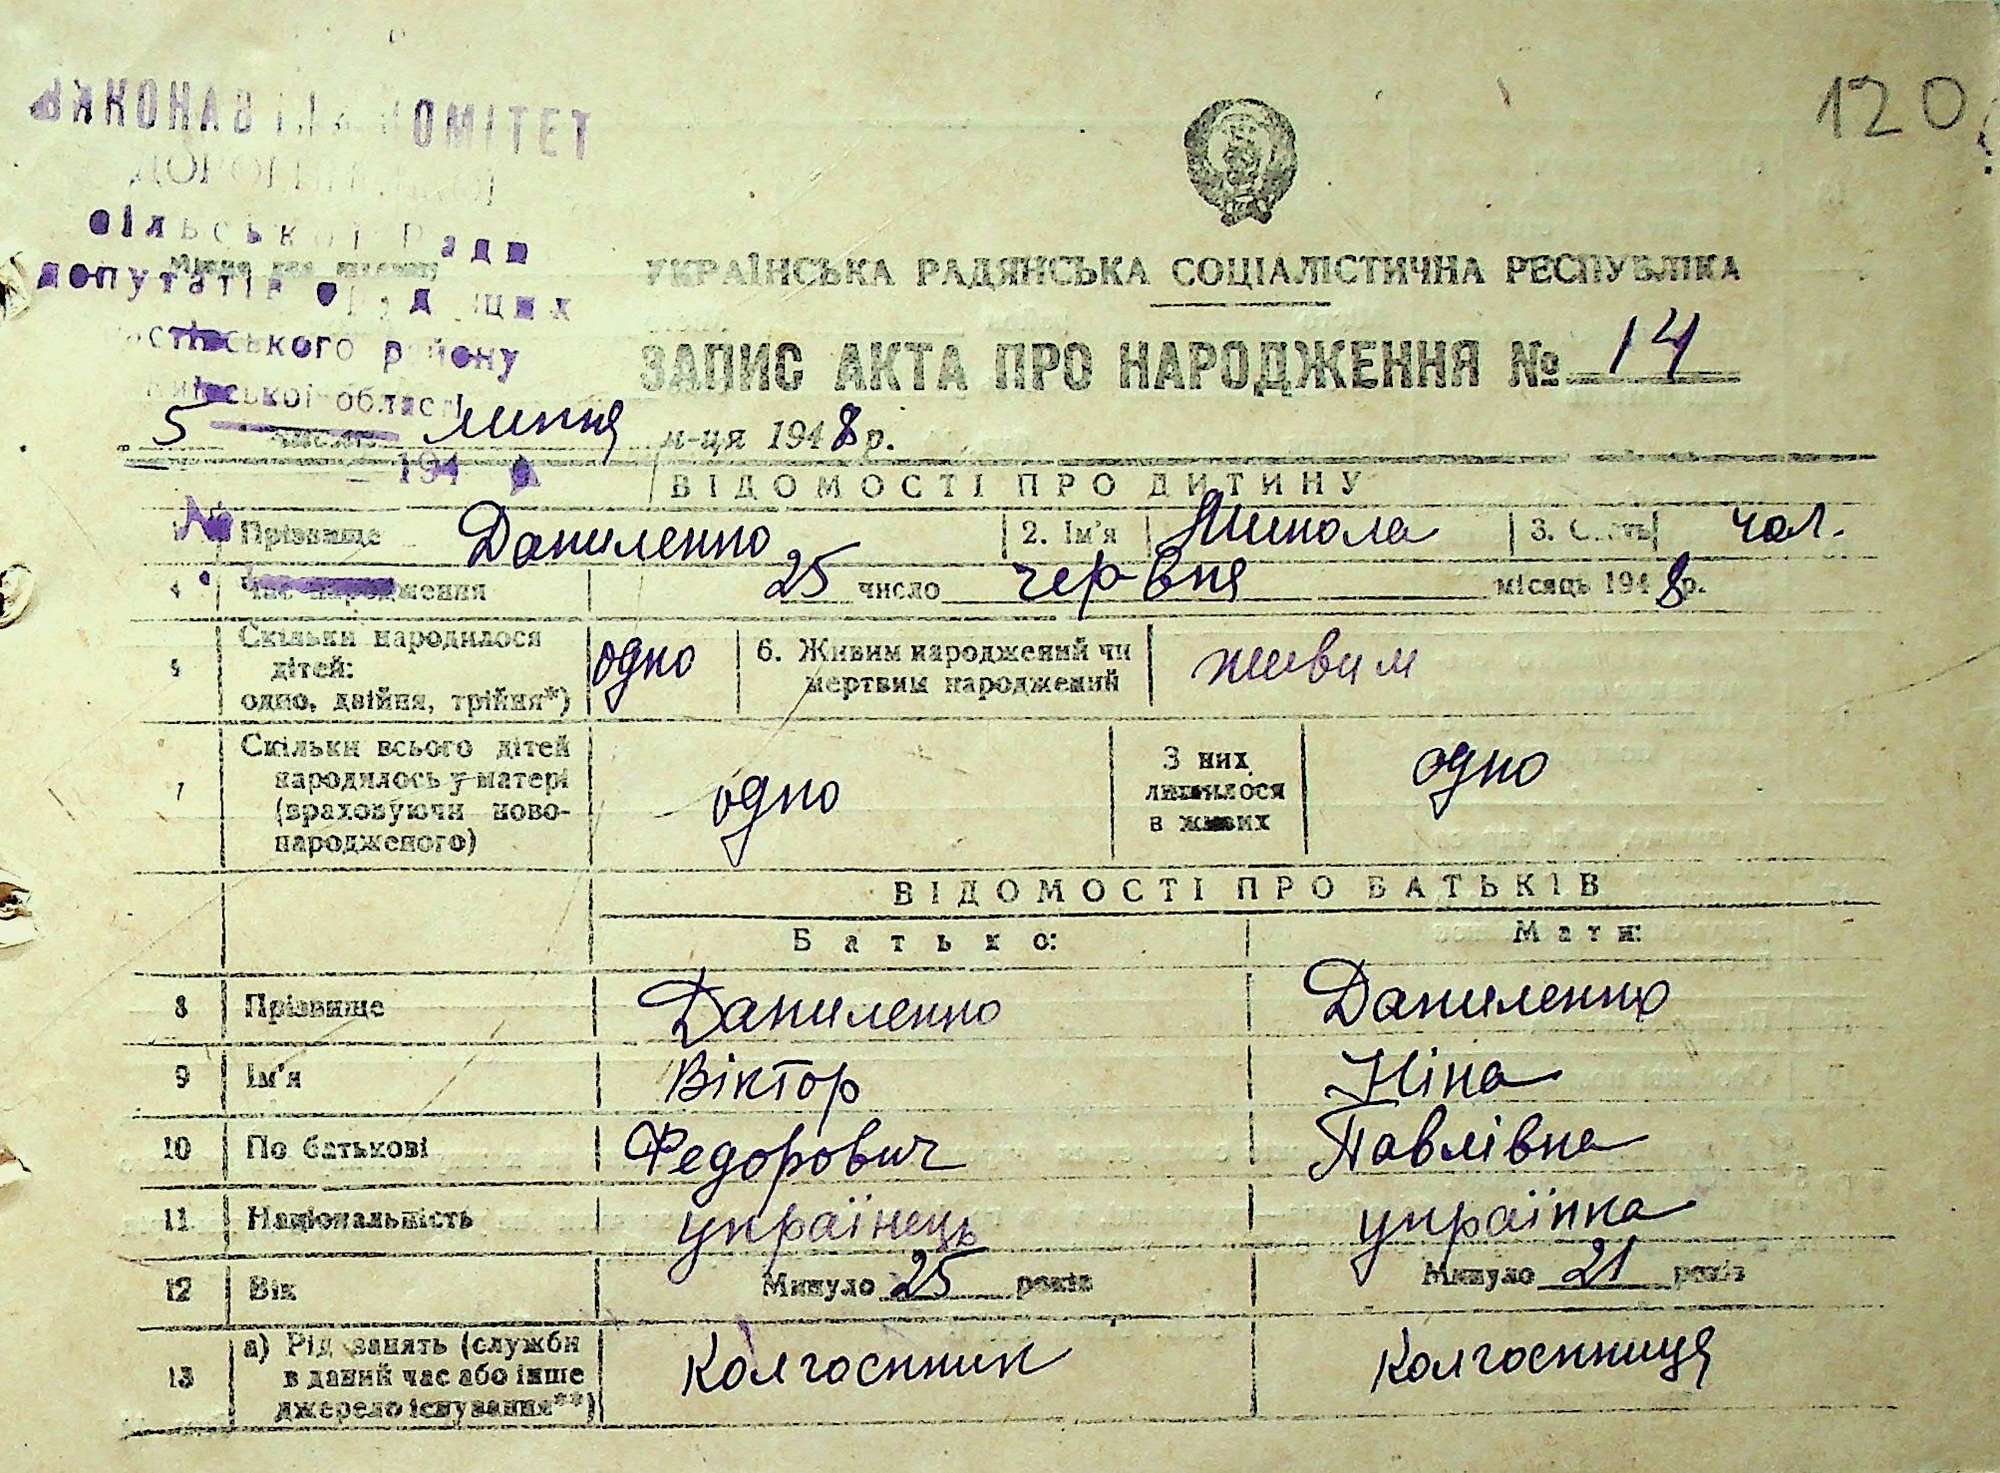 120
КОМІТЕТ
сільської Ради
депутатів
району
області
УКРАЇНСЬКА РАДЯНСЬКА СОЦІАЛІСТИЧНА РЕСПУБЛІКА
ЗАПИС АКТА ПРО НАРОДЖЕННЯ № 14
5 липня м-ця 1948 р.
194
ВІДОМОСТІ ПРО ДИТИНУ
№
Прізвище Даниленко 2. Ім'я Микола 3. Стать чол.
4 Час народження 25 число червня місяць 1948 р.
5 Скільки народилося дітей: одно, двійня, трійня*) одно 6. Живим народжений чи мертвим народжений живим
7 Скільки всього дітей народилось у матері (враховуючи новонародженого) одно З них лишилося в живих одно
ВІДОМОСТІ ПРО БАТЬКІВ
Батько: Мати:
8 Прізвище Даниленко Даниленко
9 Ім'я Віктор Ніна
10 По батькові Федорович Павлівна
11 Національність українець українка
12 Вік Минуло 25 років Минуло 21 років
13 а) Рід занять (служби в даний час або інше джерело існування**) Колгоспник Колгоспниця